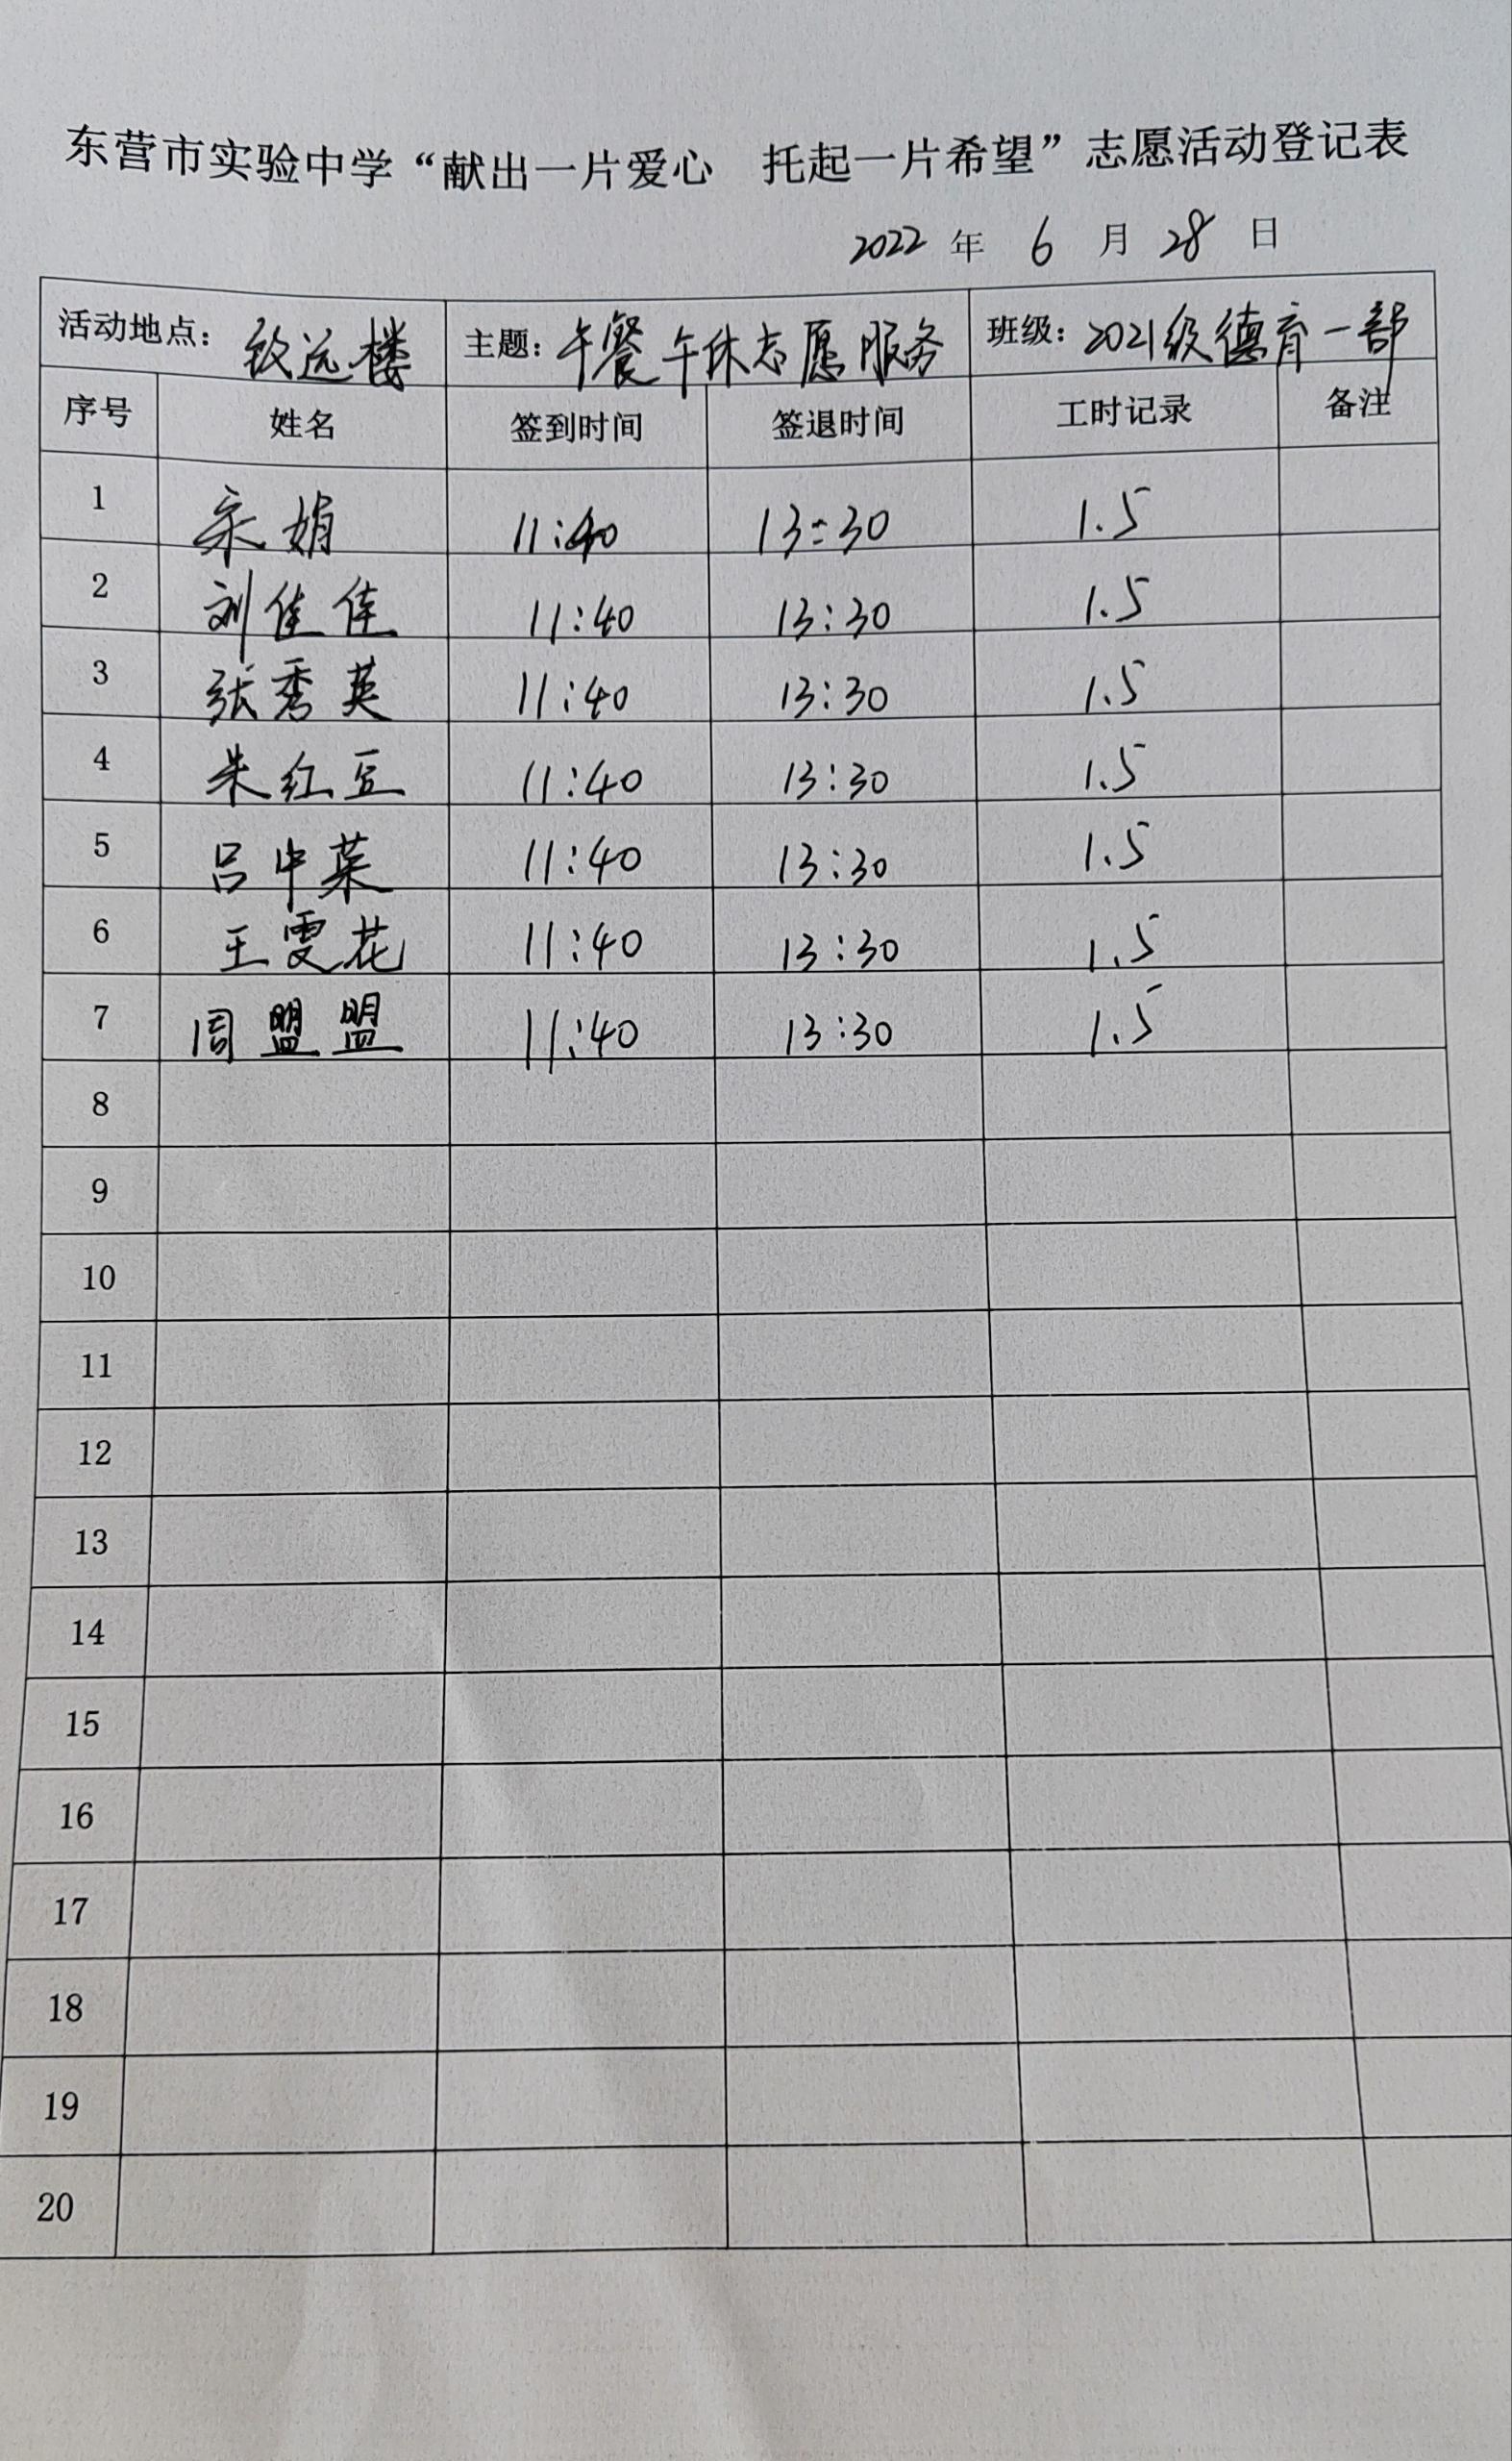 东营市实验中学“献出一片爱心 托起一片希望”志愿活动登记表
2022 年 6 月 28 日
活动地点：致远楼 主题：午餐午休志愿服务 班级：2021级德育一部
序号 姓名 签到时间 签退时间 工时记录 备注
1 宋娟 11:40 13:30 1.5
2 刘佳佳 11:40 13:30 1.5
3 张秀英 11:40 13:30 1.5
4 朱红豆 11:40 13:30 1.5
5 吕中菜 11:40 13:30 1.5
6 王雯花 11:40 13:30 1.5
7 周盟盟 11:40 13:30 1.5
8
9
10
11
12
13
14
15
16
17
18
19
20